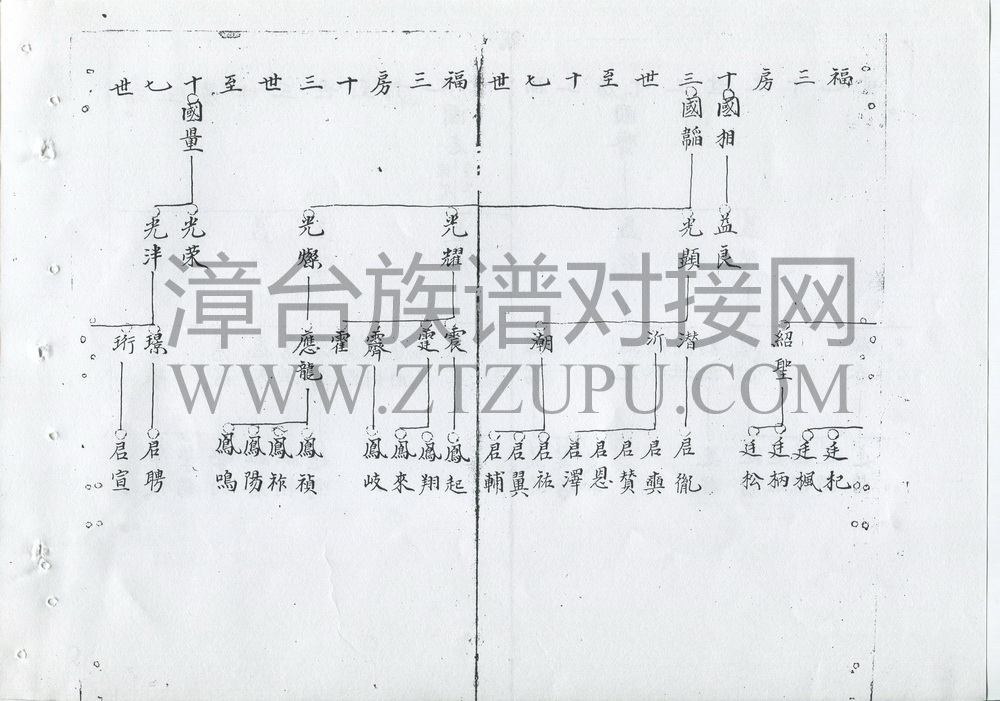 福三房十三世至十七世
福三房十三世至十七世
國相
國韜
國量
益良
光顯
光耀
光燦
光荣
光泮
紹聖
潜
沂
潮
震
霆
霽
霍
應龍
璟
珩
廷杞
廷楓
廷柄
廷松
启胤
启奭
启赞
启恩
启澤
启祐
启翼
启輔
鳳起
鳳翔
鳳來
鳳岐
鳳禎
鳳祚
鳳陽
鳳鳴
启聘
启宣
漳台族谱对接网
WWW.ZTZUPU.COM